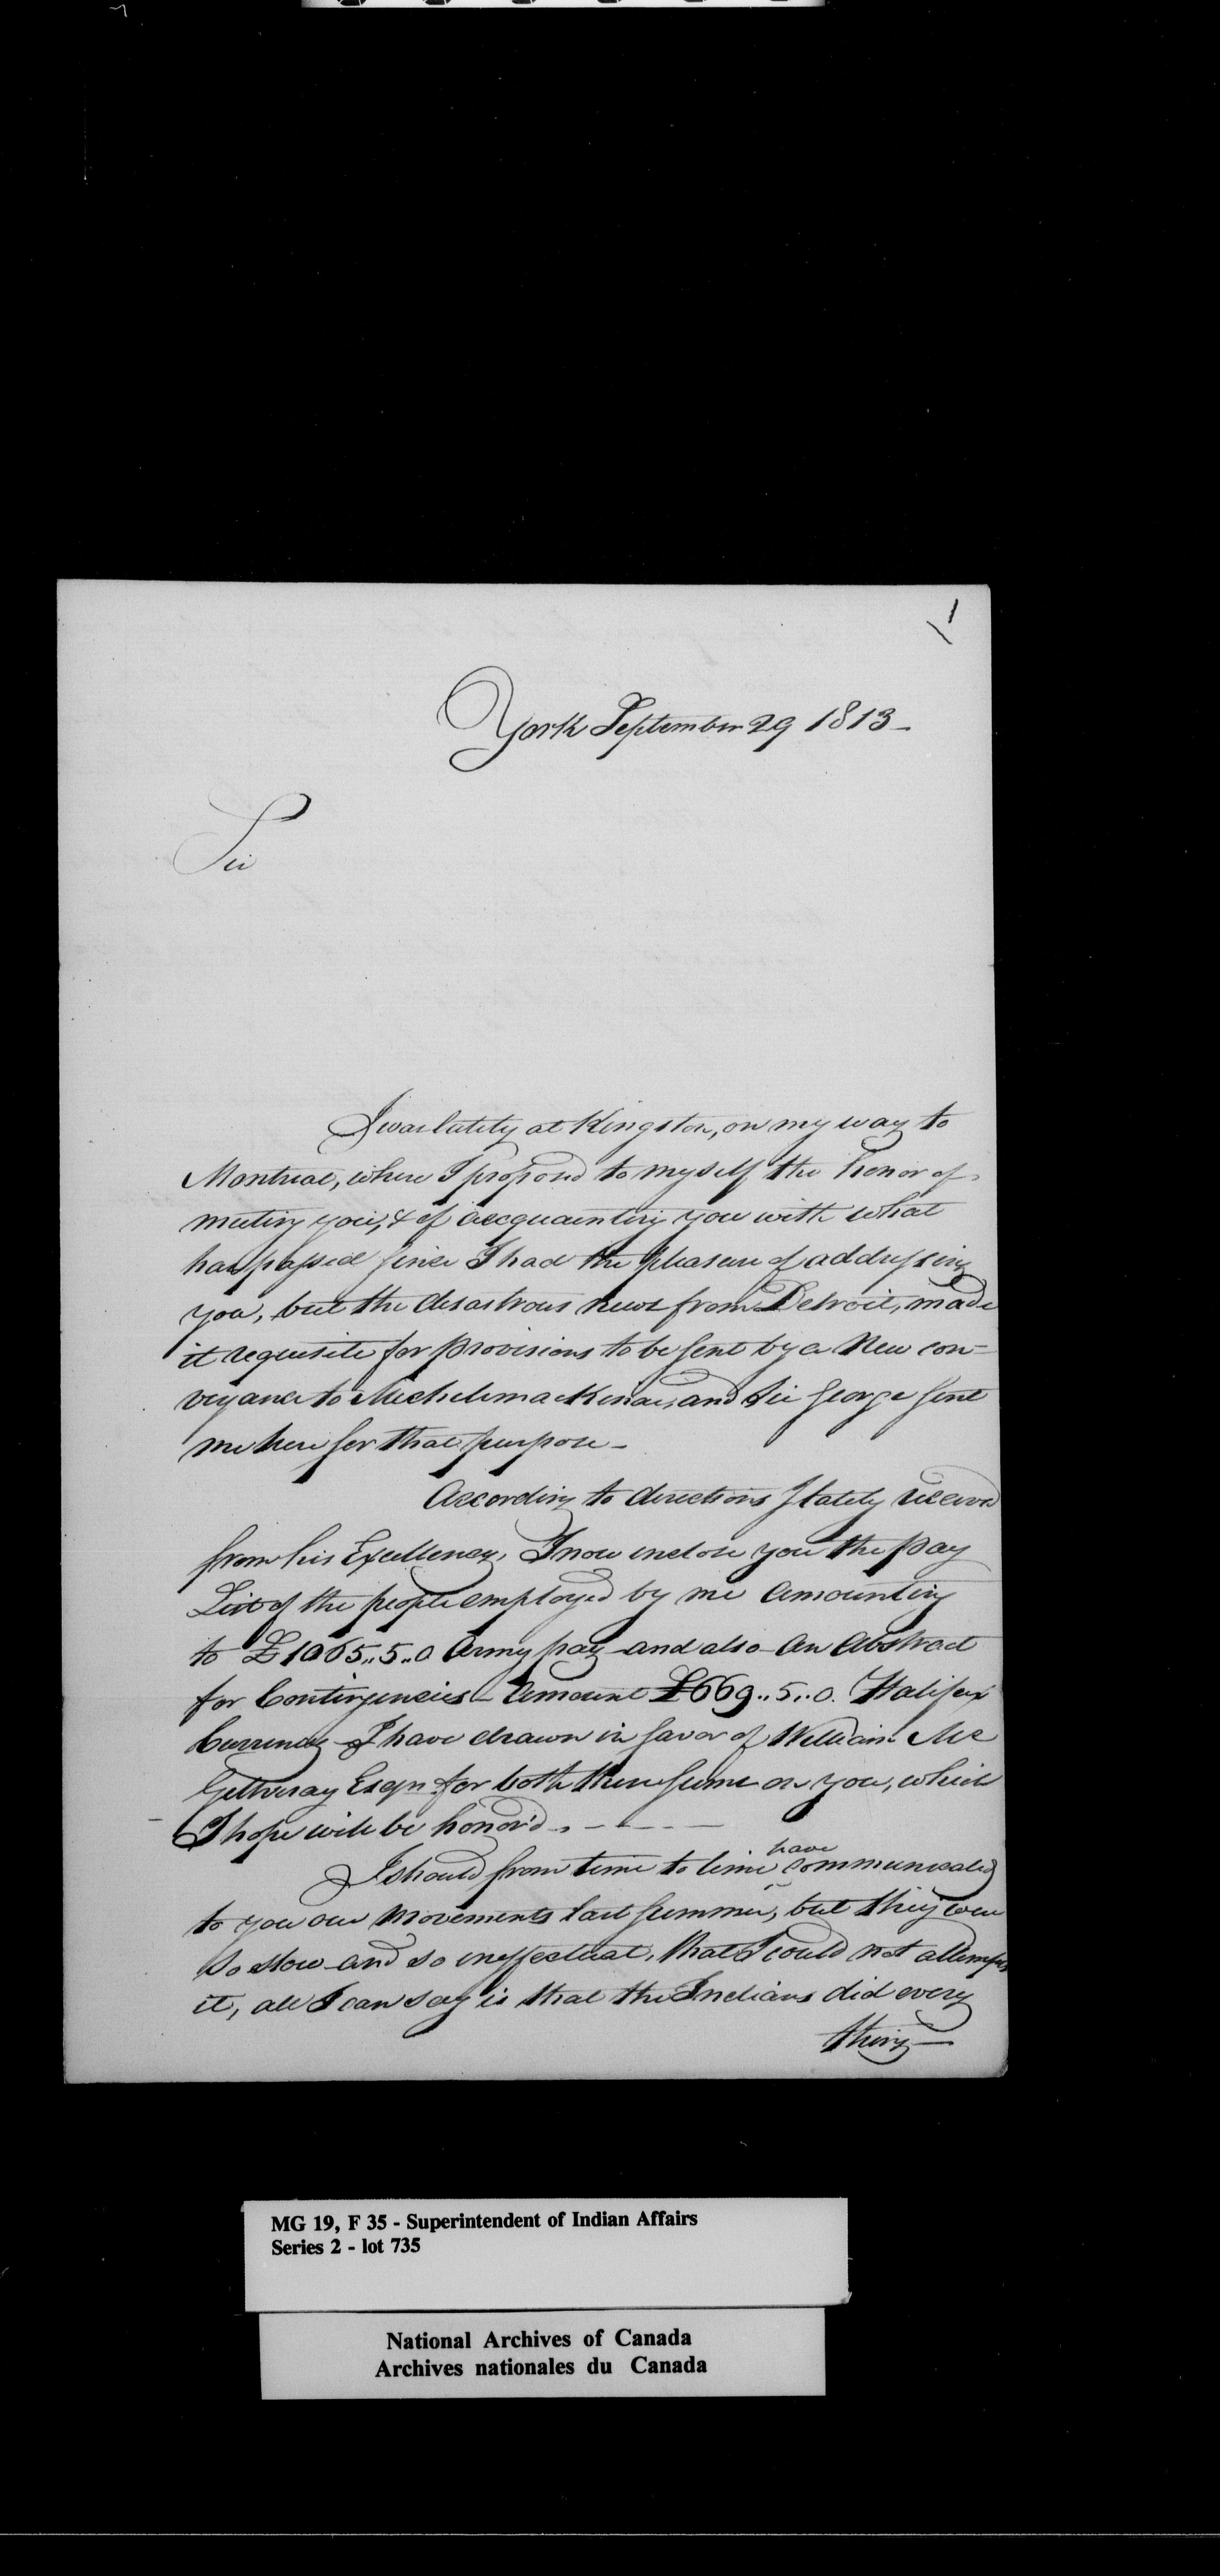 York September 29 1813 -
Sir
I was lately at Kingston, on my way to
Montreal, where I proposed to myself the honor of
meeting you, & of accquainting you with what
has passed since I had the pleasure of addressing
you, but the disastrous news from Detroit, made
it requisite for provisions to be sent by a New con=
veyance to Michilimackinac, and Sir George sent
me here for that purpose -
According to directions I lately received
from his Excellency, I now inclose you the pay
List of the people employed by me amounting
to £1065..5..0 Army pay - and also - an Abstract
for Contingencies - Amount £669..5..0. Halifax
Currency - I have drawn in favor of William Mc
Gillivray Esqr. for both these sums on you, which
I hope will be honor'd. - - - -
I should from time to time have communicated
to you our movements last summer, but they were
so slow and so ineffectual, that I could not attempt
it, all I can say is that the Indians did every
thing -
MG 19, F 35 - Superintendent of Indian Affairs
Series 2 - lot 735
National Archives of Canada
Archives nationales du Canada